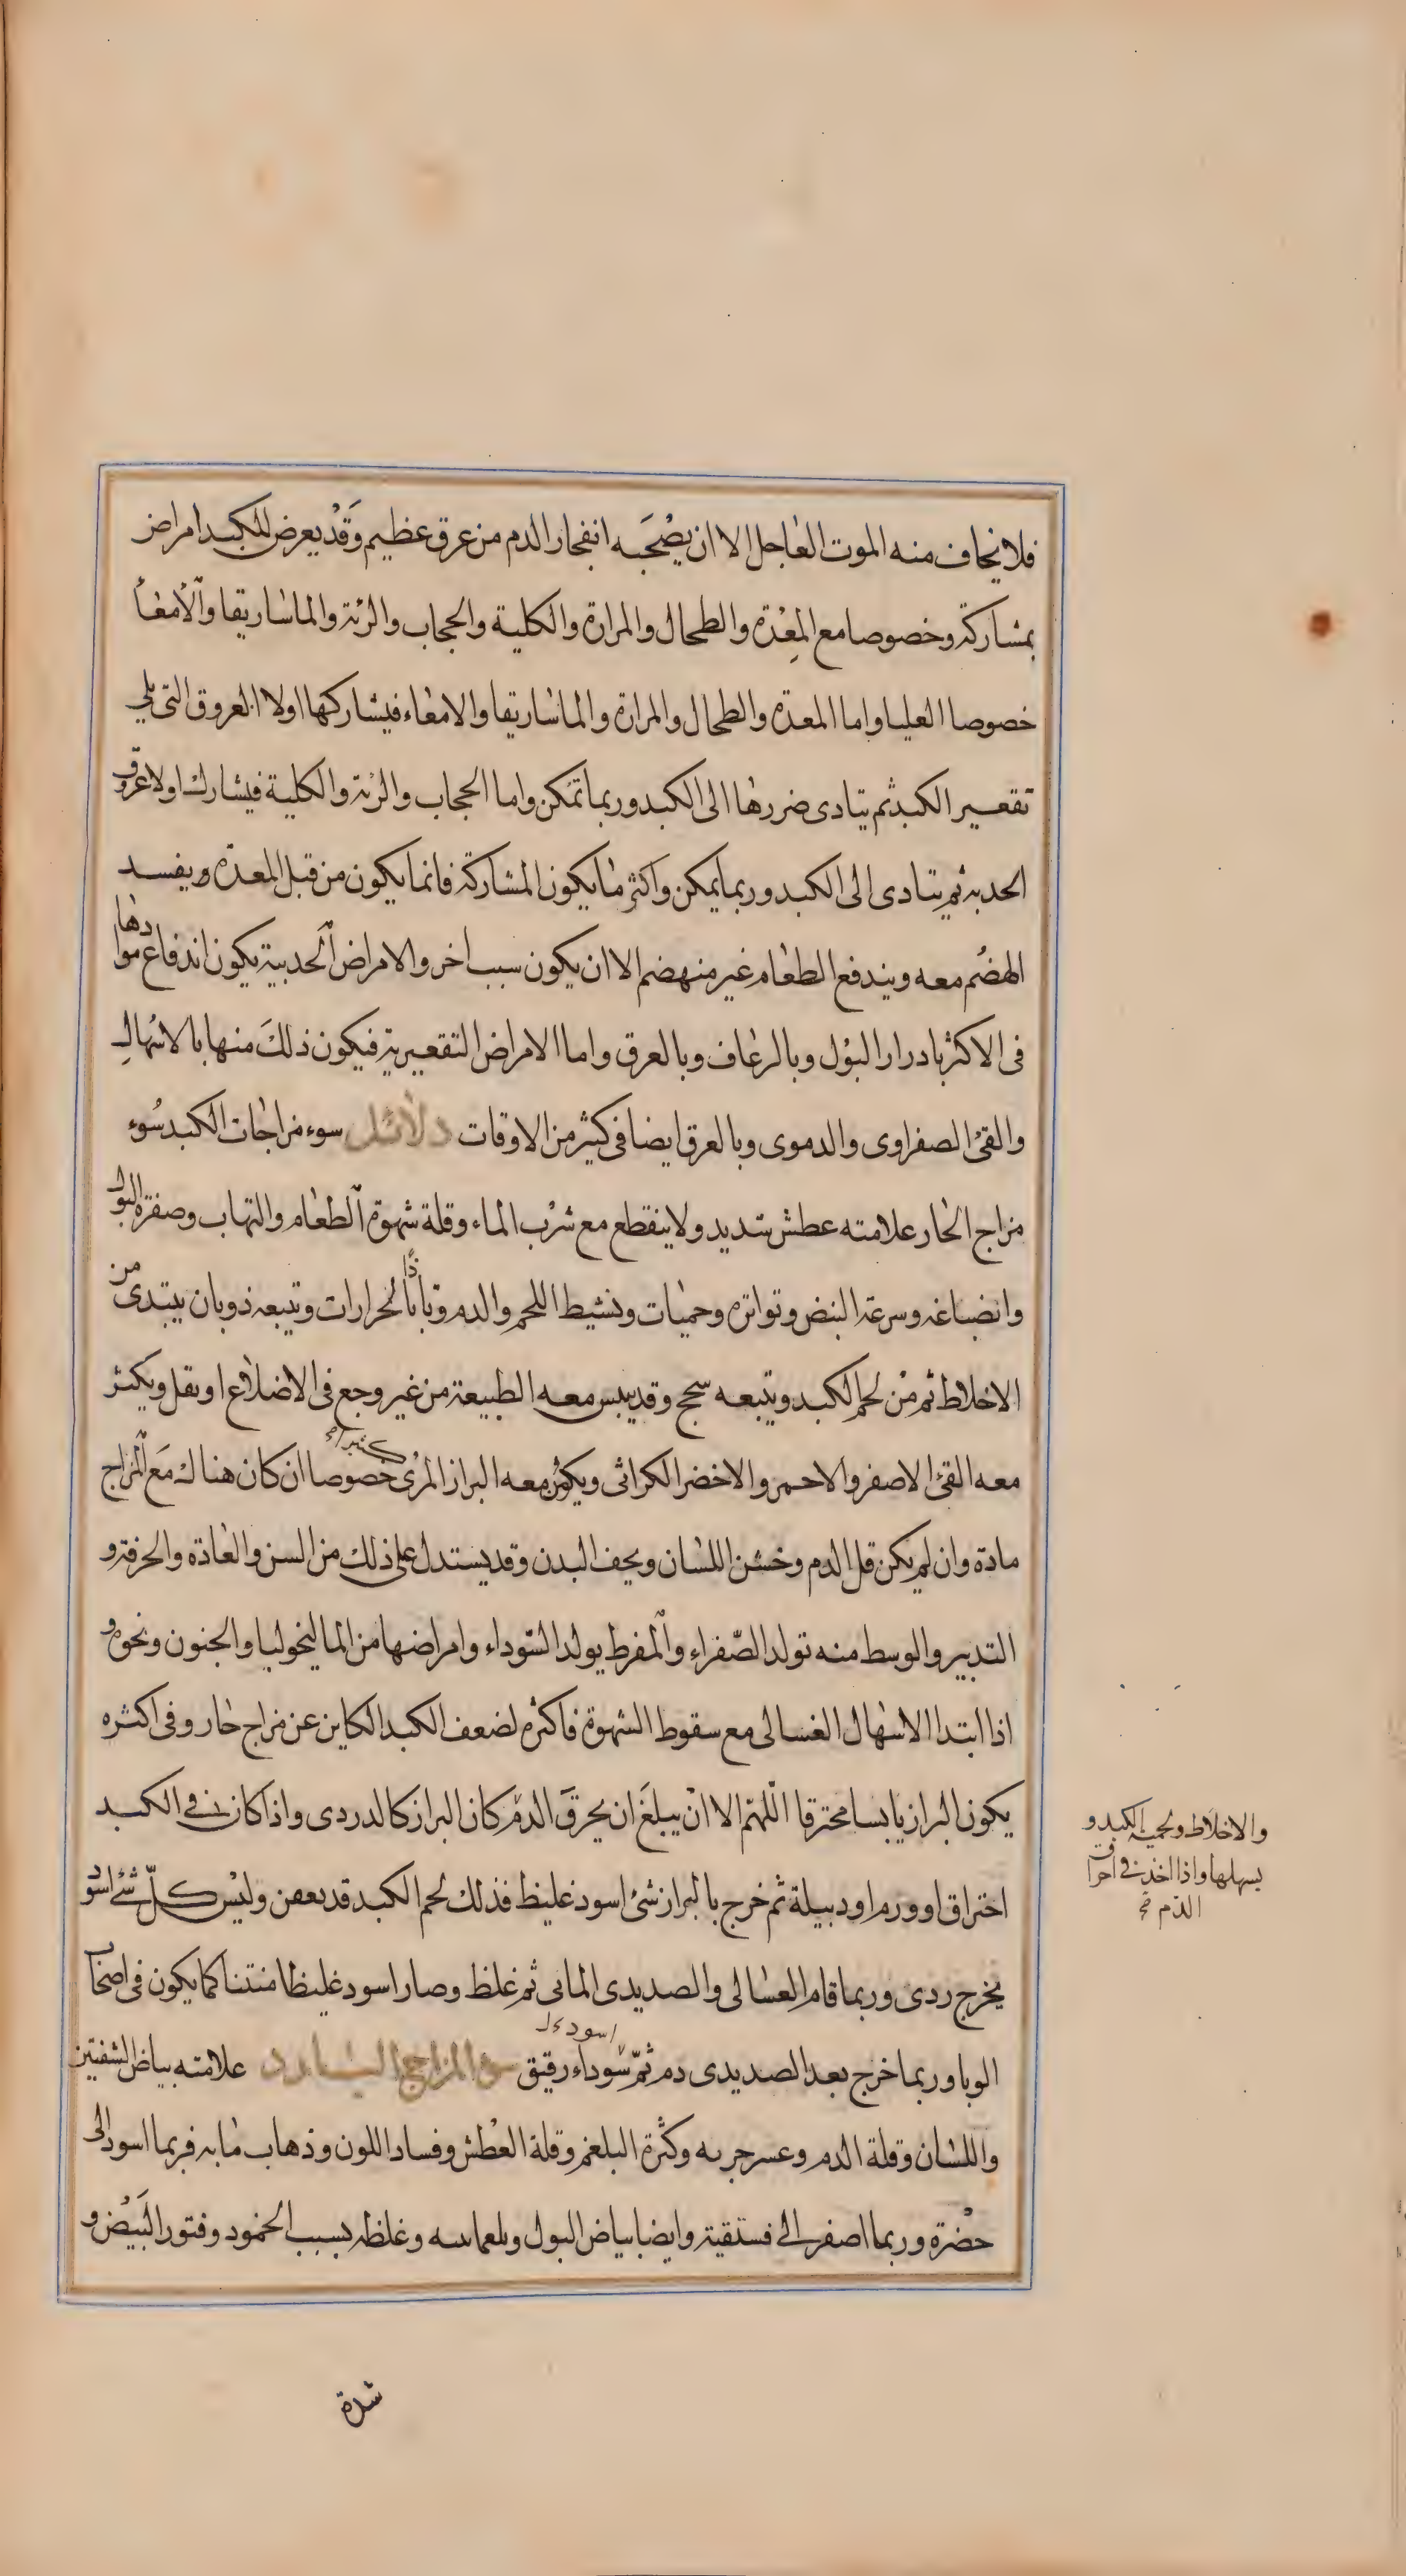 فلا يخاف منه الموت العاجل الا ان يصحبه انفجار الدم من عرق عظيم وقد يعرض للكبد امراض
بمشاركة وخصوصا مع المعدة والطحال والمرارة والكلية والحجاب والرئة والماساريقا والأمعأ
خصوصا العليا واما المعدة والطحال والمرارة والماساريقا والامعاء فيشاركها اولا العروق التى تلي
تقعير الكبد ثم يتادى ضررها الى الكبد وربما تمكن واما الحجاب والرئة والكلية فيشارك اولا عروق
الحدبه ثم يتادى الى الكبد وربما يمكن واكثر ما يكون المشاركة فانما يكون من قبل المعدة ويفسد
الهضم معه ويندفع الطعام غير منهضم الا ان يكون سبب اخر والامراض الحدبية يكون اندفاع موادها
فى الاكثر بادرار البول وبالرعاف وبالعرق واما الامراض التقعيرية فيكون ذلك منها بالاسهال
والقئ الصفراوى والدموى وبالعرق ايضا فى كثير من الاوقات دلائل سوء مزاجات الكبد سوء
مزاج الحار علامته عطش شديد ولا ينقطع مع شرب الماء وقلة شهوة الطعام والتهاب وصفرة البول
وانصباغه وسرعة النبض وتواتره وحميات وتشيط اللحم والدم وتاذا بالحرارات وتتبعه ذوبان يبتدى من
الاخلاط ثم من لحم الكبد ويتبعه سحج وقد يبس معه الطبيعة من غير وجع فى الاضلاع او ثقل ويكثر
معه القئ الاصفر والاحمر والاخضر الكراثى ويكون معه البراز المرى كثيرا خصوصا ان كان هناك مع المزاج
مادة وان لم يكن قل الدم وخشن اللسان ويحف البدن وقد يستدل على ذلك من السن والعادة والحرفة و
التدبير والوسط منه تولد الصفراء والمفرط يولد السوداء وامراضها من الماليخوليا والجنون ونحوه و
اذا ابتدا الاسهال الغسالى مع سقوط الشهوة فاكثره لضعف الكبد الكاين عن مزاج حار وفى اكثره
يكون البراز يابسا محترقا اللهم الا ان يبلغ ان يحرق الدم كان البراز كالدردى واذا كان في الكبد
احتراق او ورم او دبيلة ثم خرج بالبراز شئ اسود غليظ فذلك لحم الكبد قد يعفن وليس كل شئ اسود
يخرج ردى وربما قام الغسالى والصديدى المائى ثم غلظ وصار اسود غليظا منتنا كما يكون فى اصحاب
الوبا وربما خرج بعد الصديدى دم ثم سوداء رقيق سوء المزاج البارد علامته بياض الشفتين
واللسان وقلة الدم وعسر جريه وكثرة البلغم وقلة العطش وفساد اللون وذهاب مابه فربما اسود الى
خضرة وربما اصفر الى فستقية وايضا بياض البول وغلظه بسبب الخمود وفتور النبض و
والاخلاط ولحمية الكبد و
يسهلها واذا اخذ في احراق
الدم صح
اسود
شدة